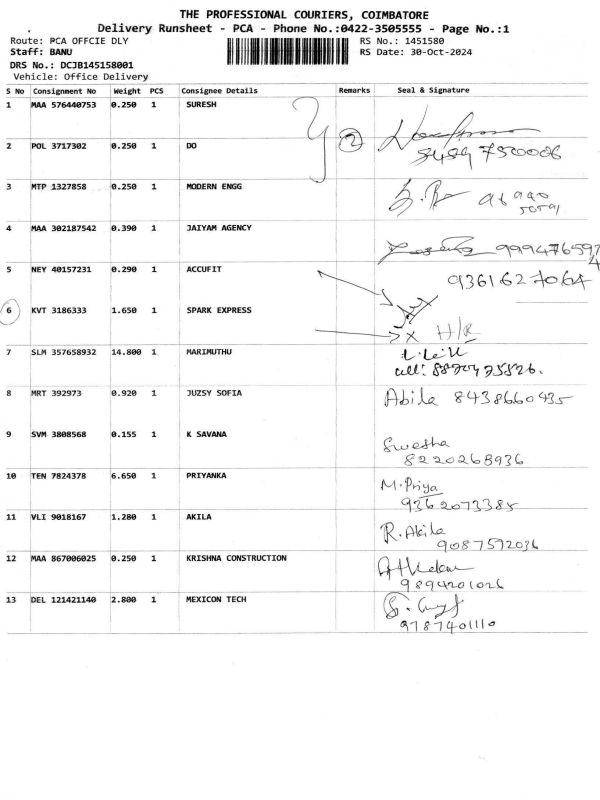 THE PROFESSIONAL COURIERS, COIMBATORE
Delivery Runsheet - PCA - Phone No.:0422-3505555 - Page No.:1
Route: PCA OFFCIE DLY
RS No.: 1451580
Staff: BANU
RS Date: 30-Oct-2024
DRS No.: DCJB145158001
Vehicle: Office Delivery
S No Consignment No Weight PCS Consignee Details Remarks Seal & Signature
1 MAA 576440753 0.250 1 SURESH
2 POL 3717302 0.250 1 DO 2
3 MTP 1327858 0.250 1 MODERN ENGG
4 MAA 302187542 0.390 1 JAIYAM AGENCY
9994765974
5 NEY 40157231 0.290 1 ACCUFIT
9361627064
6 KVT 3186333 1.650 1 SPARK EXPRESS
X H/R
7 SLM 357658932 14.800 1 MARIMUTHU
8 MRT 392973 0.920 1 JUZSY SOFIA Abila 8438660435
9 SVM 3808568 0.155 1 K SAVANA
Swetha
8220268936
10 TEN 7824378 6.650 1 PRIYANKA
M.Priya
9362073385
11 VLI 9018167 1.280 1 AKILA
R.Akila
9087572036
12 MAA 867006025 0.250 1 KRISHNA CONSTRUCTION
9894201026
13 DEL 121421140 2.800 1 MEXICON TECH
9787401110